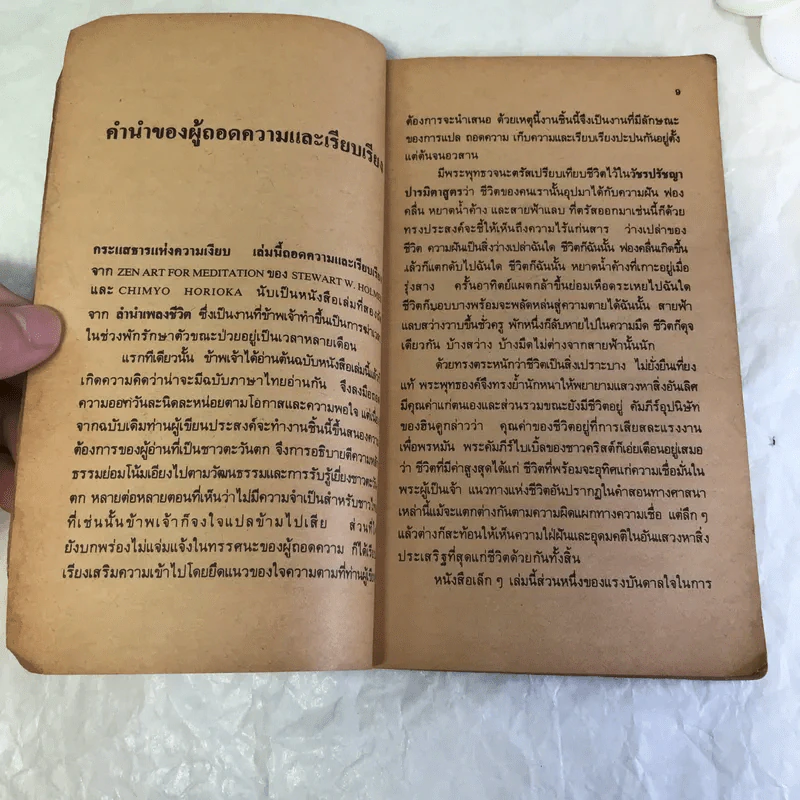 คำนำของผู้ถอดความและเรียบเรียง
กระแสธารแห่งความเงียบ เล่มนี้ถอดความและเรียบเรียง
จาก ZEN ART FOR MEDITATION ของ STEWART W. HOLMES
และ CHIMYO HORIOKA นับเป็นหนังสือเล่มที่สอง
จาก ลำนำเพลงชีวิต ซึ่งเป็นงานที่ข้าพเจ้าทำขึ้นเป็นการ
ในช่วงพักรักษาตัวขณะป่วยอยู่เป็นเวลาหลายเดือน
แรกทีเดียวนั้น ข้าพเจ้าได้อ่านต้นฉบับหนังสือเล่มนี้แล้ว
เกิดความคิดว่าน่าจะมีฉบับภาษาไทยอ่านกัน จึงลงมือ
ความออกวันละนิดละหน่อยตามโอกาสและความพอใจ
จากฉบับเดิมท่านผู้เขียนประสงค์จะทำงานชิ้นนี้ขึ้นสนอง
ต้องการของผู้อ่านที่เป็นชาวตะวันตก จึงการอธิบายตีความ
ธรรมย่อมโน้มเอียงไปตามวัฒนธรรมและการรับรู้เยี่ยงชาวตะวัน
ตก หลายต่อหลายตอนที่เห็นว่าไม่มีความจำเป็นสำหรับชาวไทย
ที่เช่นนั้นข้าพเจ้าก็จงใจแปลข้ามไปเสีย ส่วนที่
ยังบกพร่องไม่แจ่มแจ้งในทรรศนะของผู้ถอดความ ก็ได้
เรียงเสริมความเข้าไปโดยยึดแนวของใจความตามที่ท่าน
9
ต้องการจะนำเสนอ ด้วยเหตุนี้งานชิ้นนี้จึงเป็นงานที่มีลักษณะ
ของการแปล ถอดความ เก็บความและเรียบเรียงปะปนกันอยู่ตั้ง
แต่ต้นจนอวสาน
มีพระพุทธวจนะตรัสเปรียบเทียบชีวิตไว้ในวัชรปรัชญา
ปารมิตาสูตรว่า ชีวิตของคนเรานั้นอุปมาได้กับความฝัน ฟอง
คลื่น หยาดน้ำค้าง และสายฟ้าแลบ ที่ตรัสออกมาเช่นนี้ก็ด้วย
ทรงประสงค์จะชี้ให้เห็นถึงความไร้แก่นสาร ว่างเปล่าของ
ชีวิต ความฝันเป็นสิ่งว่างเปล่าฉันใด ชีวิตก็ฉันนั้น ฟองคลื่นเกิดขึ้น
แล้วก็แตกดับไปฉันใด ชีวิตก็ฉันนั้น หยาดน้ำค้างที่เกาะอยู่เมื่อ
รุ่งสาง ครั้นอาทิตย์แผดกล้าขึ้นย่อมเหือดระเหยไปฉันใด
ชีวิตก็บอบบางพร้อมจะพลัดหล่นสู่ความตายได้ฉันนั้น สายฟ้า
แลบสว่างวาบขึ้นชั่วครู่ พักหนึ่งก็ลับหายไปในความมืด ชีวิตก็ดุจ
เดียวกัน บ้างสว่าง บ้างมืดไม่ต่างจากสายฟ้านั้นนัก
ด้วยทรงตระหนักว่าชีวิตเป็นสิ่งเปราะบาง ไม่ยั่งยืนเที่ยง
แท้ พระพุทธองค์จึงทรงย้ำนักหนาให้พยายามแสวงหาสิ่งอันเลิศ
มีคุณค่าแก่ตนเองและส่วนรวมขณะยังมีชีวิตอยู่ คัมภีร์อุปนิษัท
ของฮินดูกล่าวว่า คุณค่าของชีวิตอยู่ที่การเสียสละแรงงาน
เพื่อพรหมัน พระคัมภีร์ไบเบิ้ลของชาวคริสต์ก็เอ่ยเตือนอยู่เสมอ
ว่า ชีวิตที่มีค่าสูงสุดได้แก่ ชีวิตที่พร้อมจะอุทิศแก่ความเชื่อมั่นใน
พระผู้เป็นเจ้า แนวทางแห่งชีวิตอันปรากฏในคำสอนทางศาสนา
เหล่านี้แม้จะแตกต่างกันตามความผิดแผกทางความเชื่อ แต่ลึก ๆ
แล้วต่างก็สะท้อนให้เห็นความใฝ่ฝันและอุดมคติในอันแสวงหาสิ่ง
ประเสริฐที่สุดแก่ชีวิตด้วยกันทั้งสิ้น
หนังสือเล็ก ๆ เล่มนี้ส่วนหนึ่งของแรงบันดาลใจในการ